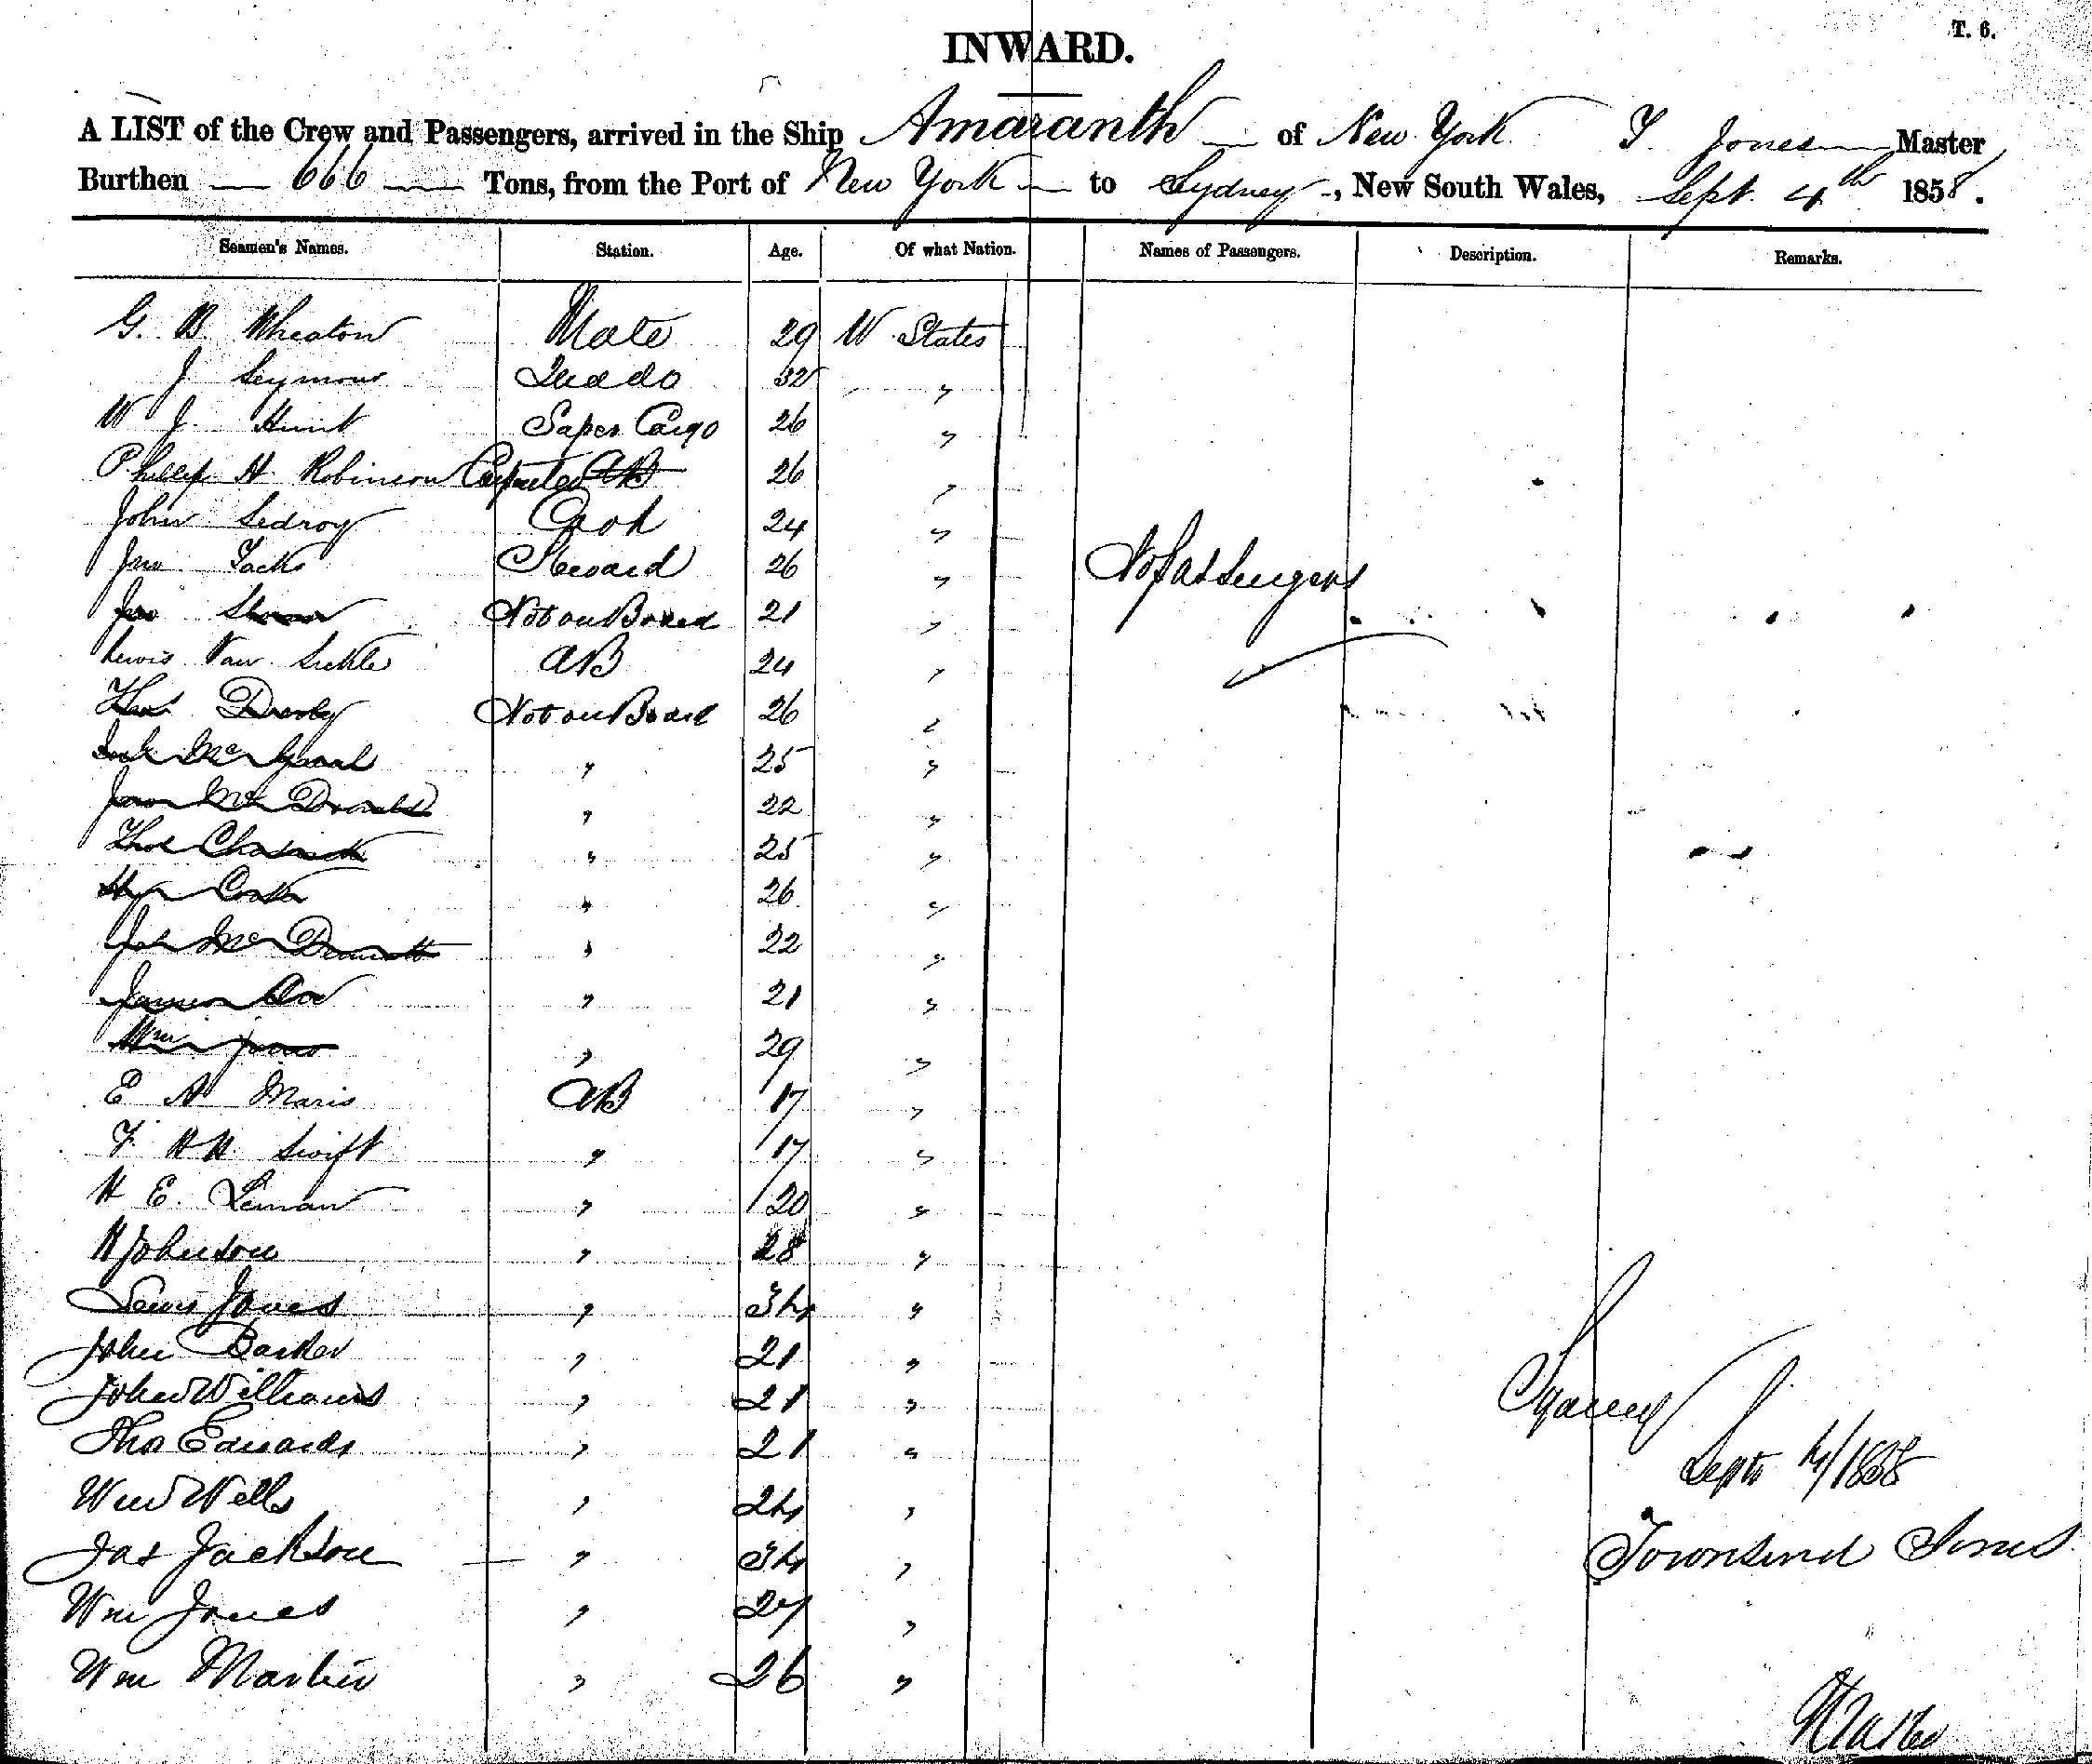 T. 6.
INWARD.
A LIST of the Crew and Passengers, arrived in the Ship Amaranth of New York T. Jones Master
Burthen 666 Tons, from the Port of New York to Sydney, New South Wales, Sept. 4th 1858.
Seamen's Names. Station. Age. Of what Nation. Names of Passengers. Description. Remarks.
G. B. Wheaton Mate 29 U States
J Seymour 2nd do 32 "
W J. Hunt Super Cargo 26 "
Phillip H. Robinson Carpenter AB 26 "
John Cook 24 "
Jno Steward 26 " No Passengers
Jno Not on Board 21 "
Lewis Van Sickle AB 24 "
Thos Not on Board 26 "
Mc " 25 "
Mc Donald " 22 "
Thos " 25 "
" 26 "
Mc " 22 "
James " 21 "
Wm Jones " 29 "
E A Maris AB 17 "
T. H. H. Swift " 17 "
H E. Leman " 20 "
H Johnson " 28 "
Lewis Jones " 34 "
John Barker " 21 "
John Williams " 21 "
Tho Edwards " 21 "
Sept 4/1858
Wm Wells " 24 "
Jas Jackson " 34 "
Townsend Jones
Wm Jones " 27 "
Wm Martin " 26 "